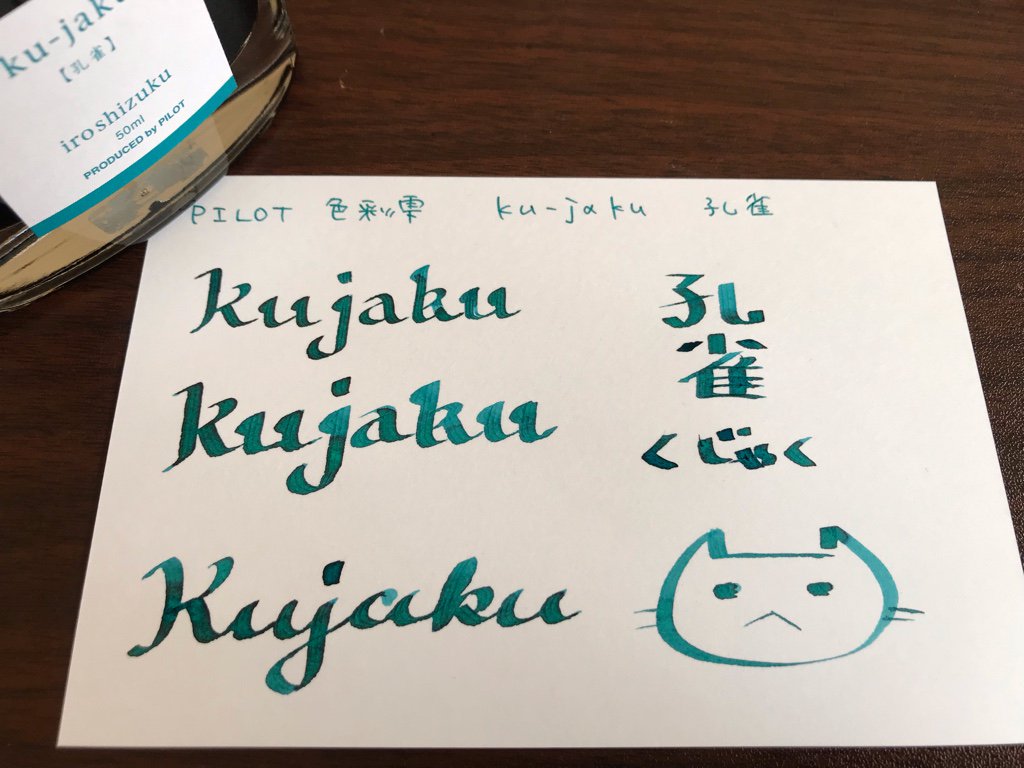 ku-jaku
【孔雀】
iroshizuku
50ml
PRODUCED by PILOT
PILOT 色彩雫 ku-jaku 孔雀
kujaku
kujaku
Kujaku
孔
雀
くじゃく